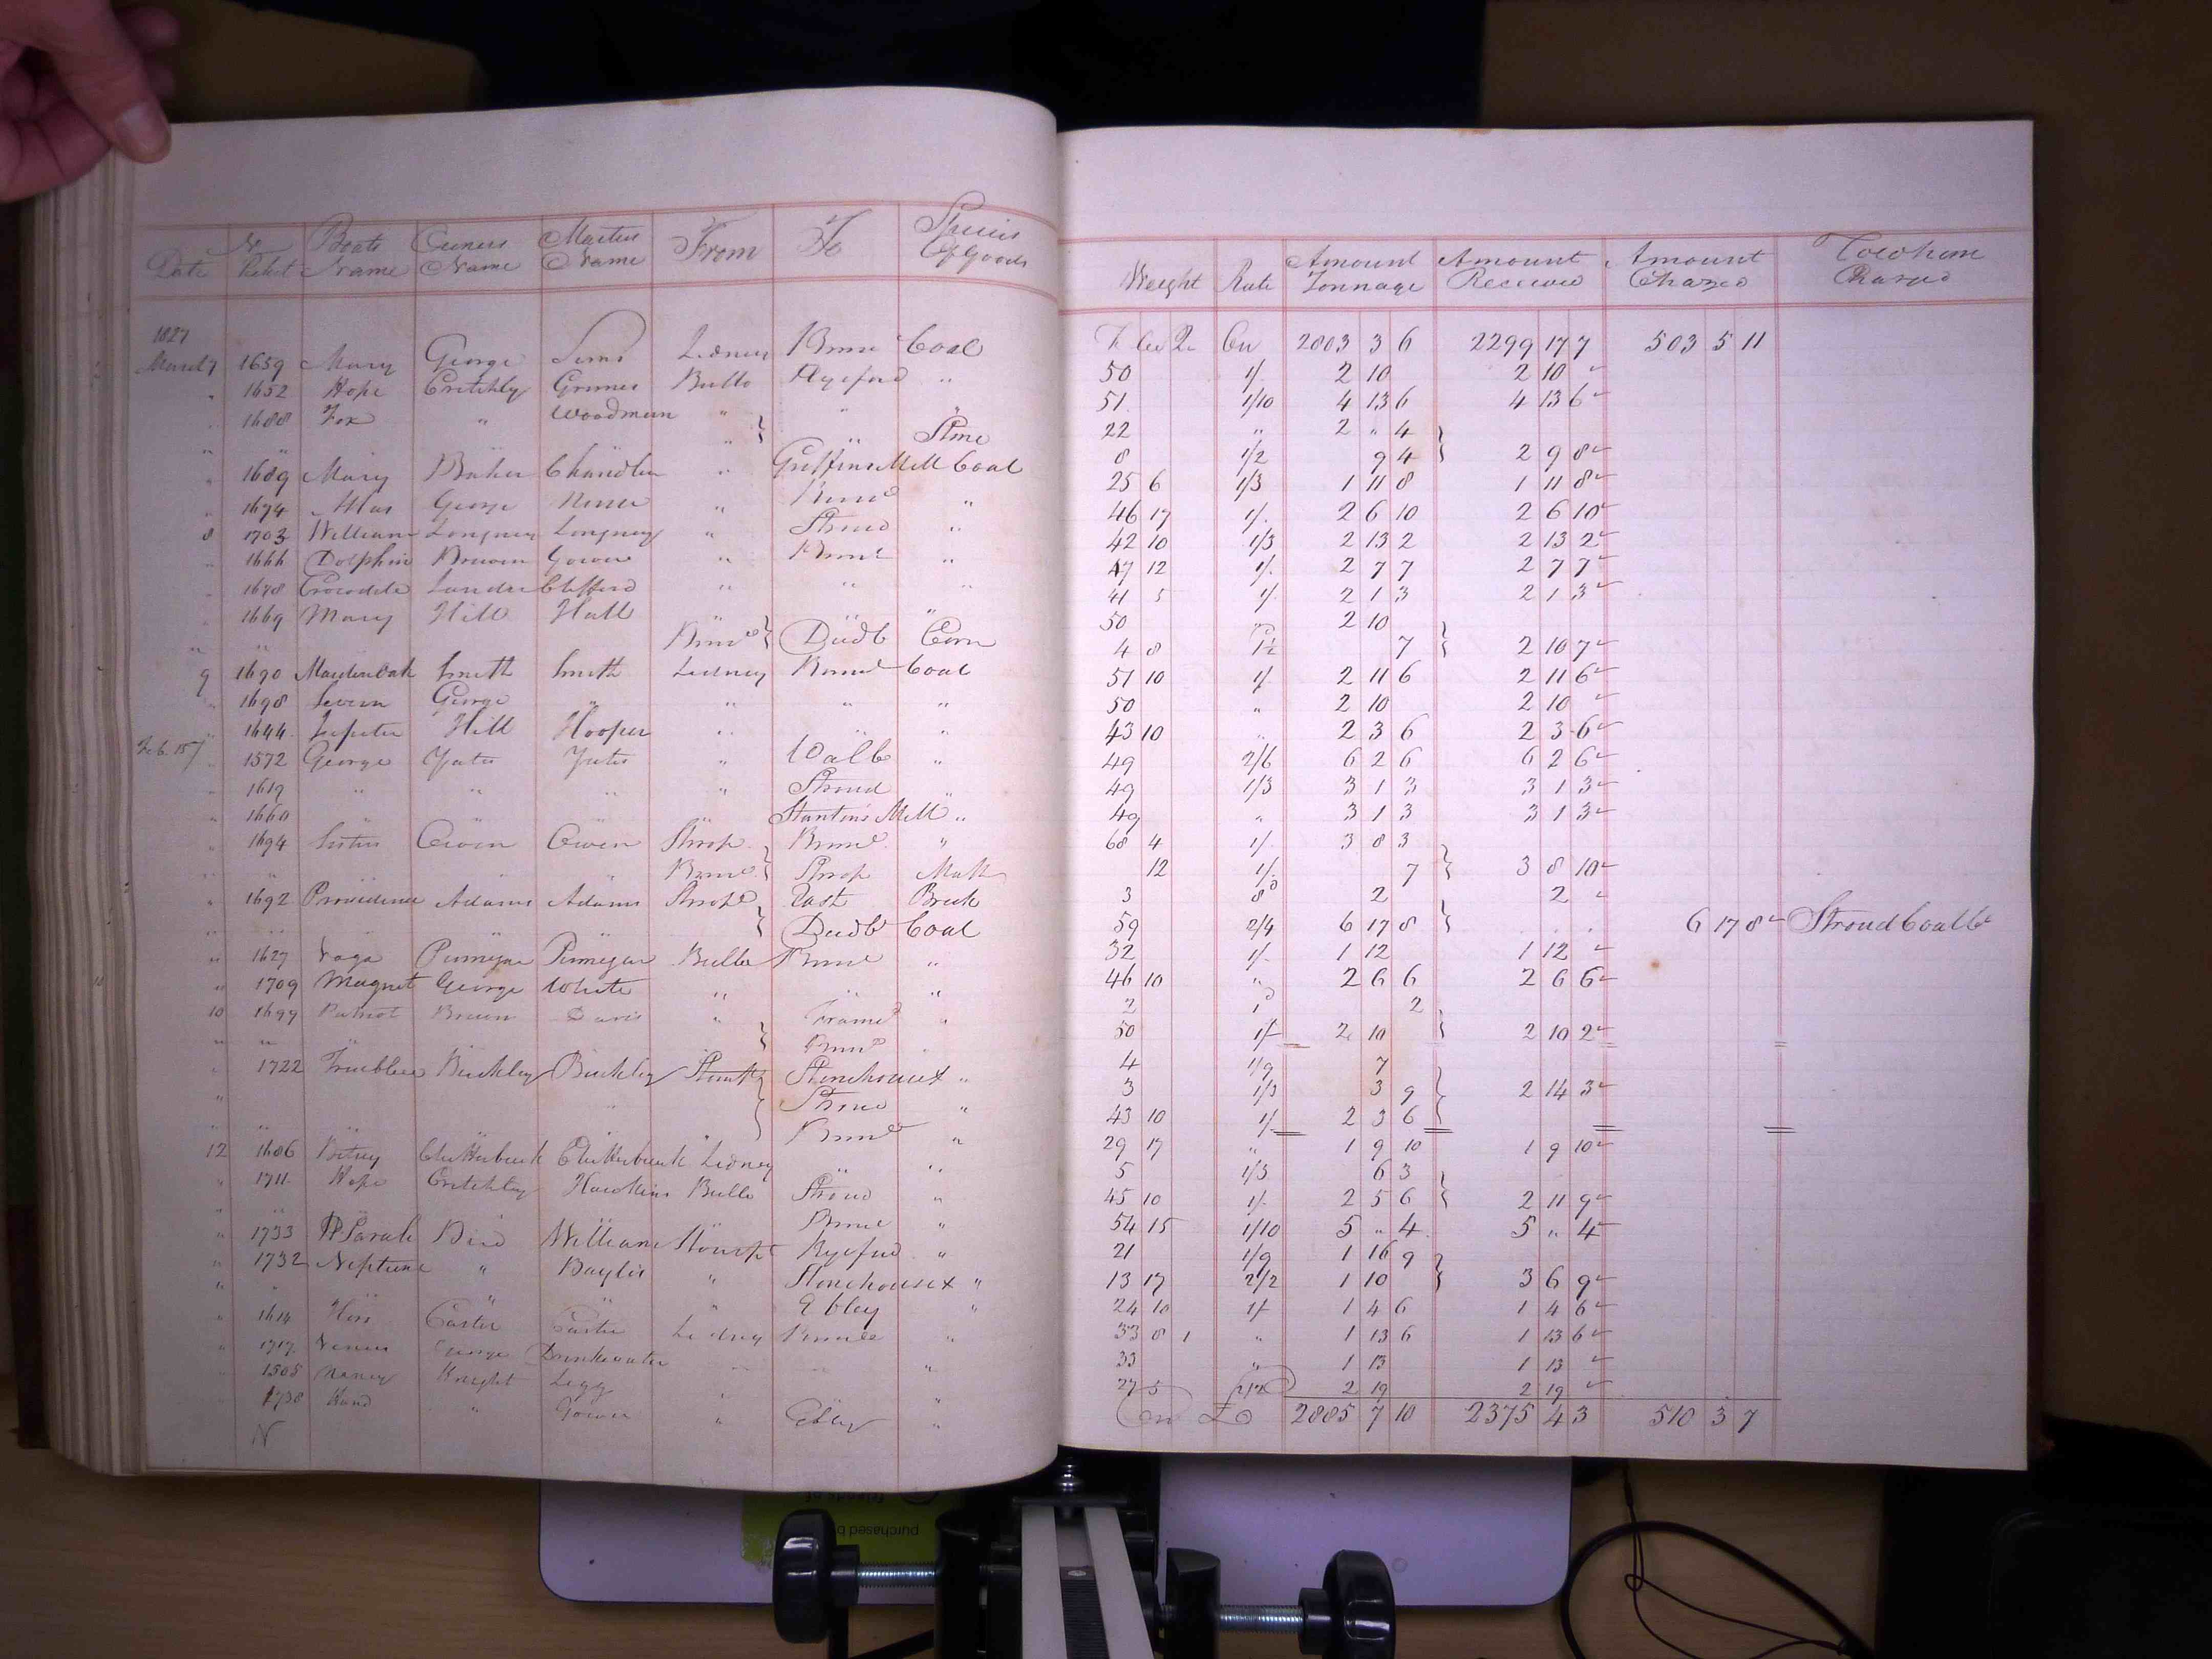 Date No Ticket Boats Name Owners Name Masters Name From To Species Of Goods Weight Rate Amount Tonnage Amount Received Amount Charged To whom Charged
1827 T Cw Q Bu 2803 3 6 2299 17 7 503 5 11
March 7 1659 Mary George Sims Lidney Brim Coal 50 1/. 2 10 2 10
" 1652 Hope Critchly Grimes Bullo Ryeford " 51 1/10 4 13 6 4 13 6
" 1688 Fox " Woodman " " " 22 " 2 " 4
" " " } " Stone 8 1/2 9 4 } 2 9 8
" 1689 Mary Baker Chandler " Griffins Mill Coal 25 6 1/3 1 11 8 1 11 8
" 1674 Atlas George " Brimd " 46 17 1/. 2 6 10 2 6 10
8 1703 William Longney Longney " Stroud " 42 10 1/3 2 13 2 2 13 2
" 1666 Dolphin Brown Gower " Brimd " 47 12 1/. 2 7 7 2 7 7
" 1678 Crocodile Clifford " " " 41 5 1/. 2 1 3 2 1 3
" 1669 Mary Hill Hall " " " 50 " 2 10
" " Brimd } Dudb Corn 4 8 1½ 7 } 2 10 7
9 1690 Maidenoak Smith Smith Lidney Brimd Coal 51 10 1/ 2 11 6 2 11 6
" 1698 Severn George " " " " 50 " 2 10 2 10
" 1644 Jupiter Hill Hooper " " " 43 10 " 2 3 6 2 3 6
Feb. 15 1572 George Yates Yates " Walb " 49 2/6 6 2 6 6 2 6
" 1619 " " " " Stroud " 49 1/3 3 1 3 3 1 3
" 1660 " " " " Stantins Mill " 49 " 3 1 3 3 1 3
" 1694 Sisters Owen Owen Shrop Brimd " 68 4 1/. 3 8 3
" " " Brimd } Shrop Malt 12 1/. 7 } 3 8 10
" 1692 Providence Adams Adams Shrop East Brick 3 8d 2 2
" " } Dudb Coal 59 2/4 6 17 8 } " " 6 17 8 Stroud Coal Co
" 1627 Vaga Pumegar Pumegar Bullo Brimd " 32 1/. 1 12 1 12
" 1709 Magnet George White " " " 46 10 " 2 6 6 2 6 6
10 1699 Patriot Brown Davis " Framd " 2 1d 2
" " } Brimd " 50 1/ 2 10 } 2 10 2
" 1722 Buckley Buckley Stonehousex " 4 1/9 7
" Stroud " 3 1/3 3 9 } 2 14 3
" " " } Brimd " 43 10 1/ 2 3 6
12 1686 Betsey Clutterbuck Clutterbuck Lidney " " 29 17 " 1 9 10 1 9 10
" 1711 Hope Critchley Hawkins Bullo Stroud " 5 1/3 6 3
" " " Brimd " 45 10 1/. 2 5 6 } 2 11 9
" 1733 Sarah Bird William Ryeford " 54 15 1/10 5 " 4 5 " 4
" 1732 Neptune " Baylis " Stonehousex " 21 1/9 1 16 9
" " " " " Ebley " 13 17 2/2 1 10 } 3 6 9
" 1614 Hero Carter Carter Lidney Brimd " 24 10 1/ 1 4 6 1 4 6
" 1717 Venus George Drinkwater " " " 33 8 1 " 1 13 6 1 13 6
" 1505 Nancy Knight Legg " " " 33 " 1 13 1 13
" 1738 " Gower " Ebley " 27 5 2/2 2 19 2 19
N £ 2885 7 10 2375 4 3 510 3 7
purchased by
friends of